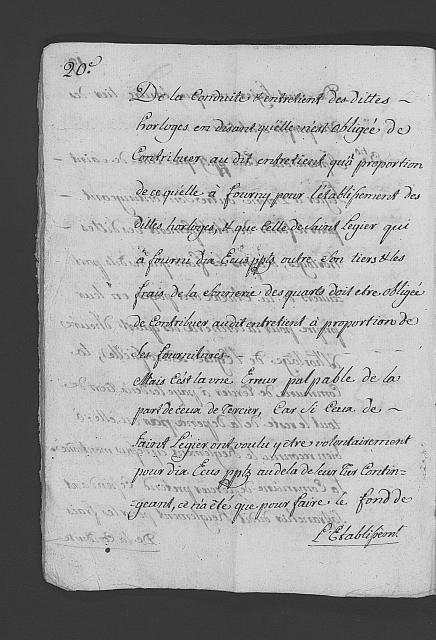 20.e
De la Conduite & entretient des dittes –
horloges en disant quelle n'est obligée de
Contribuer au dit entretient qu'a proportion
de ce quelle à fourny pour l'établissement des
dittes horloges, & que Celle de Saint Legier qui
à fourni dix Ecus pptz outre son tiers & les
frais de la sonnerie des quarts doit etre obligée
de Contribuer au dit entretient à proportion de
ses fournitures.
Mais C'est la une Erreur palpable de la
part de ceux de Tercier, Car Si Ceux de –
Saint Legier ont voulu y etre volontairement
pour dix Ecus pptz au dela de Leur tier Contin-
-geant, ce n'a été que pour faire le fond de
l'Etablissemt.